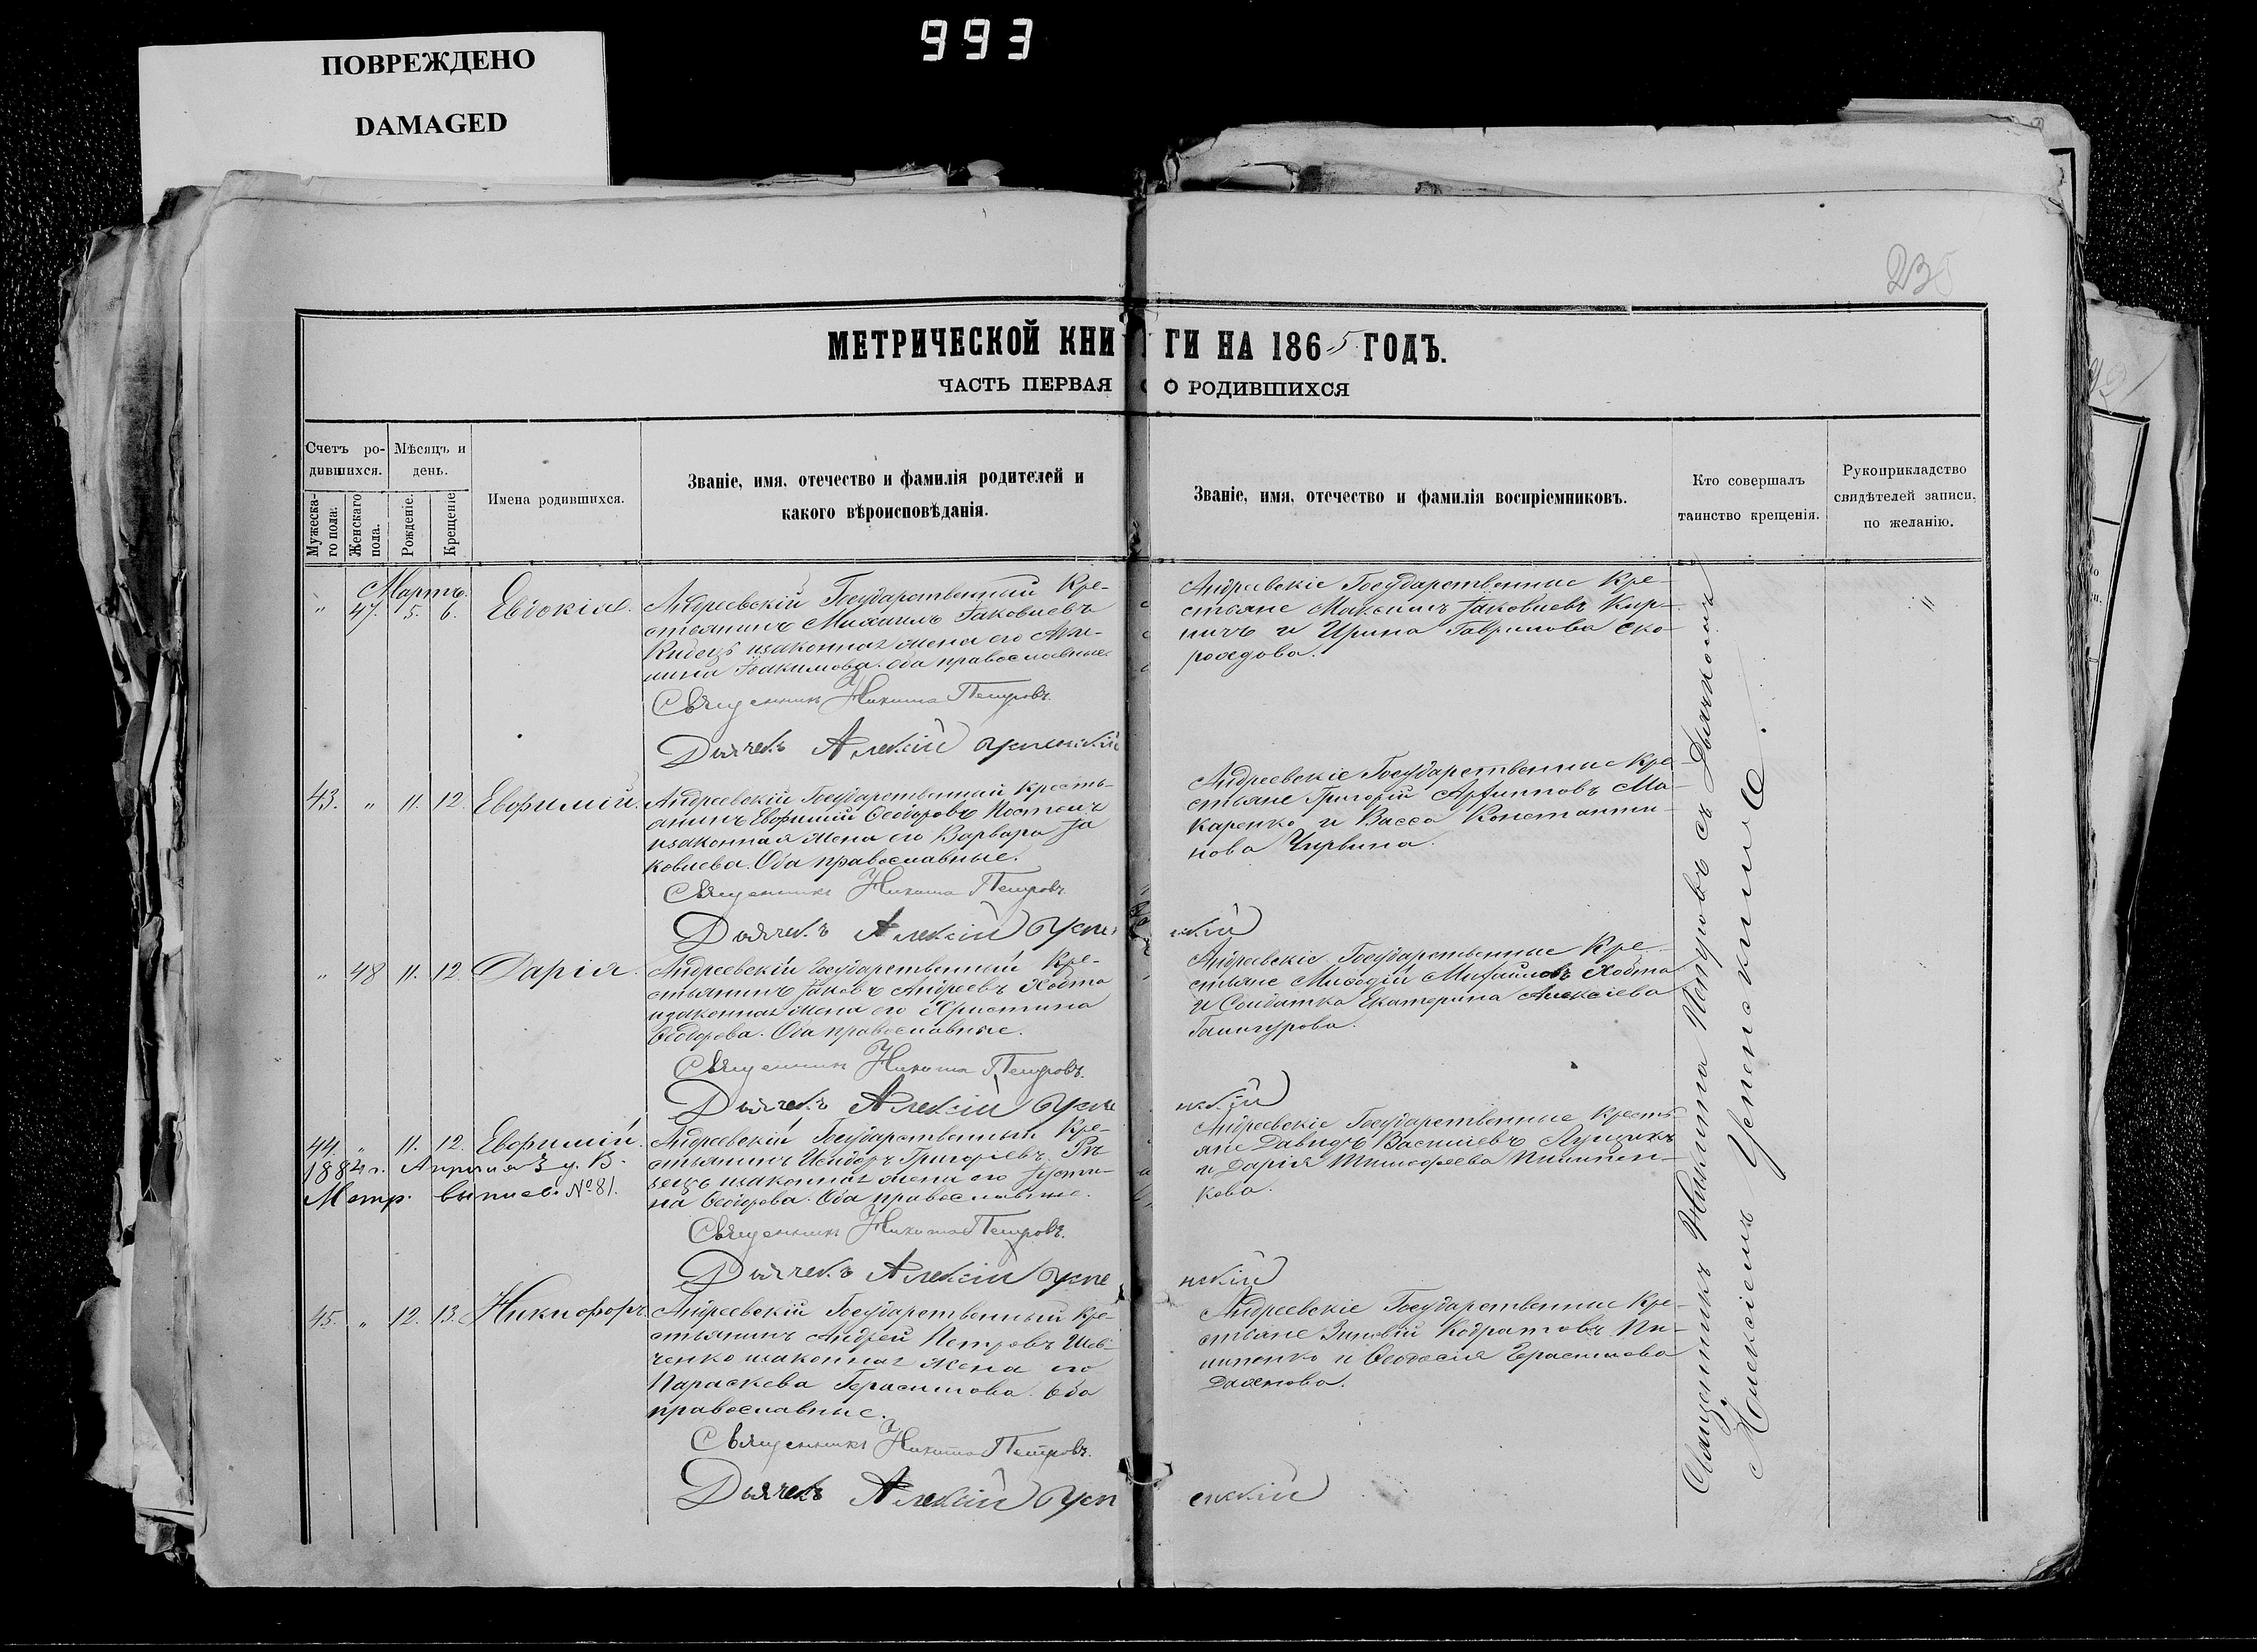 ПОВРЕЖДЕНО
DAMAGED
993
230
МЕТРИЧЕСКОЙ КНИГИ НА 1865 ГОДЪ.
ЧАСТЬ ПЕРВАЯ О РОДИВШИХСЯ
Счетъ родившихся.
Мужескаго пола.
Женскаго пола.
Мѣсяцъ и день.
Рожденіе.
Крещеніе
Имена родившихся.
Званіе, имя, отечество и фамилія родителей и
какого вѣроисповѣданія.
Званіе, имя, отечество и фамилія воспріемниковъ.
Кто совершалъ
таинство крещенія.
Рукоприкладство
свидѣтелей записи,
по желанію.
Мартъ.
" 47. 5. 6. Евдокія.
Андреевскій Государственный Кре-
стьянинъ Михаилъ Іаковлевъ
изаконная жена его
Іоакимова. Оба православные
Священникъ Никита Петровъ.
Дьячекъ Алексій Успенскій
Андреевскіе Государственные Кре-
стьяне Максимъ Іаковлевъ Кир-
пичъ и Ирина Гаврилова Ско-
роходова.
"
43. " 11. 12. Евфимій.
Андреевскій Государственный Кресть-
янинъ Евфимій Ѳеодоровъ
изаконная жена его Варвара Іа
ковлева. Оба православные.
Священникъ Никита Петровъ.
Дьячекъ Алексій Успенскій
Андреевскіе Государственные Кре-
стьяне Григорій Архипповъ Ма-
каренко и Васса Константи-
нова
" 48 11. 12. Дарія.
Андреевскій Государственный Кре-
стьянинъ Іаковъ Андреевъ Ховта
изаконная жена его Христина
Ѳеодорова. Оба православные.
Священникъ Никита Петровъ.
Дьячекъ Алексій Успенскій
Андреевскіе Государственные Кре-
стьяне Меѳодій Михаиловъ Ховта
и Солдатка Екатерина Алексіева
44. " 11. 12. Евфимій.
1884 г. Апрѣля 3 д. В.
Метр. выпись №81.
Андреевскій Государственный Кре-
стьянинъ Исидоръ Григоріевъ
изаконная жена его Іусти-
на Ѳеодорова. Оба православные.
Священникъ Никита Петровъ.
Дьячекъ Алексій Успенскій
Андреевскіе Государственные Кресть-
яне Давидъ Василіевъ Лущикъ
и Дарія Тимоѳеева Пилипен-
кова.
45. " 12. 13. Никифоръ.
Андреевскій Государственный Кре-
стьянинъ Андрей Петровъ Шев-
ченко изаконная жена его
Параскева Герасимова. Оба
православные.
Священникъ Никита Петровъ.
Дьячекъ Алексій Успенскій
Андреевскіе Государственные Кре-
стьяне Зиновій Кодратовъ Пи-
липенко и Ѳеодосія Герасимова
Священникъ Никита Петровъ съ Дьячкомъ
Алексіемъ Успенскимъ.